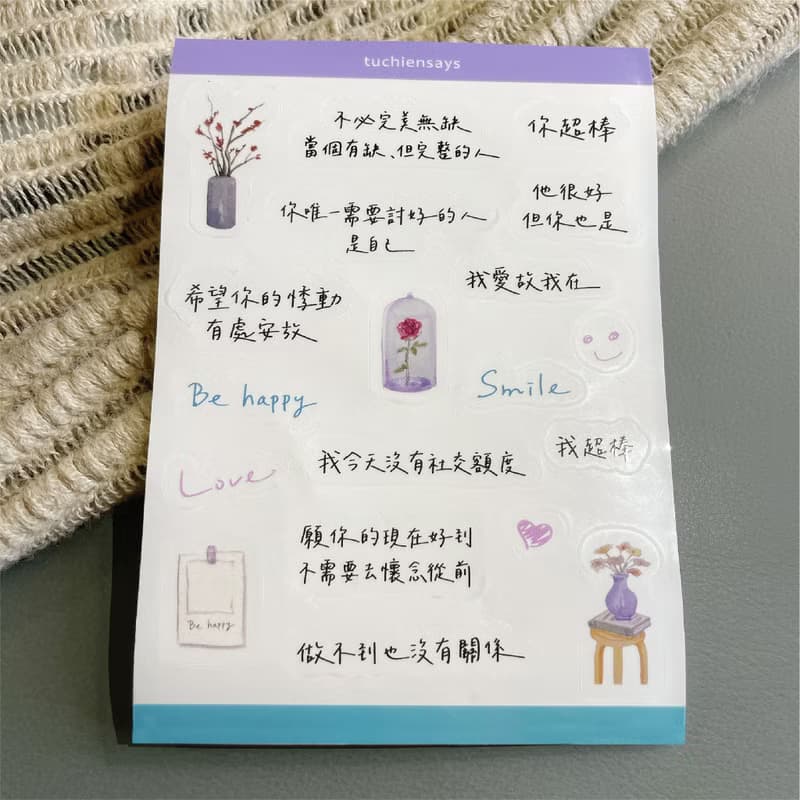 tuchiensays
不必完美無缺
當個有缺、但完整的人
你超棒
他很好
但你也是
你唯一需要討好的人
是自己
我愛故我在
希望你的悸動
有處安放
Be happy
Smile
我超棒
Love
我今天沒有社交額度
願你的現在好到
不需要去懷念從前
Be happy
做不到也沒有關係